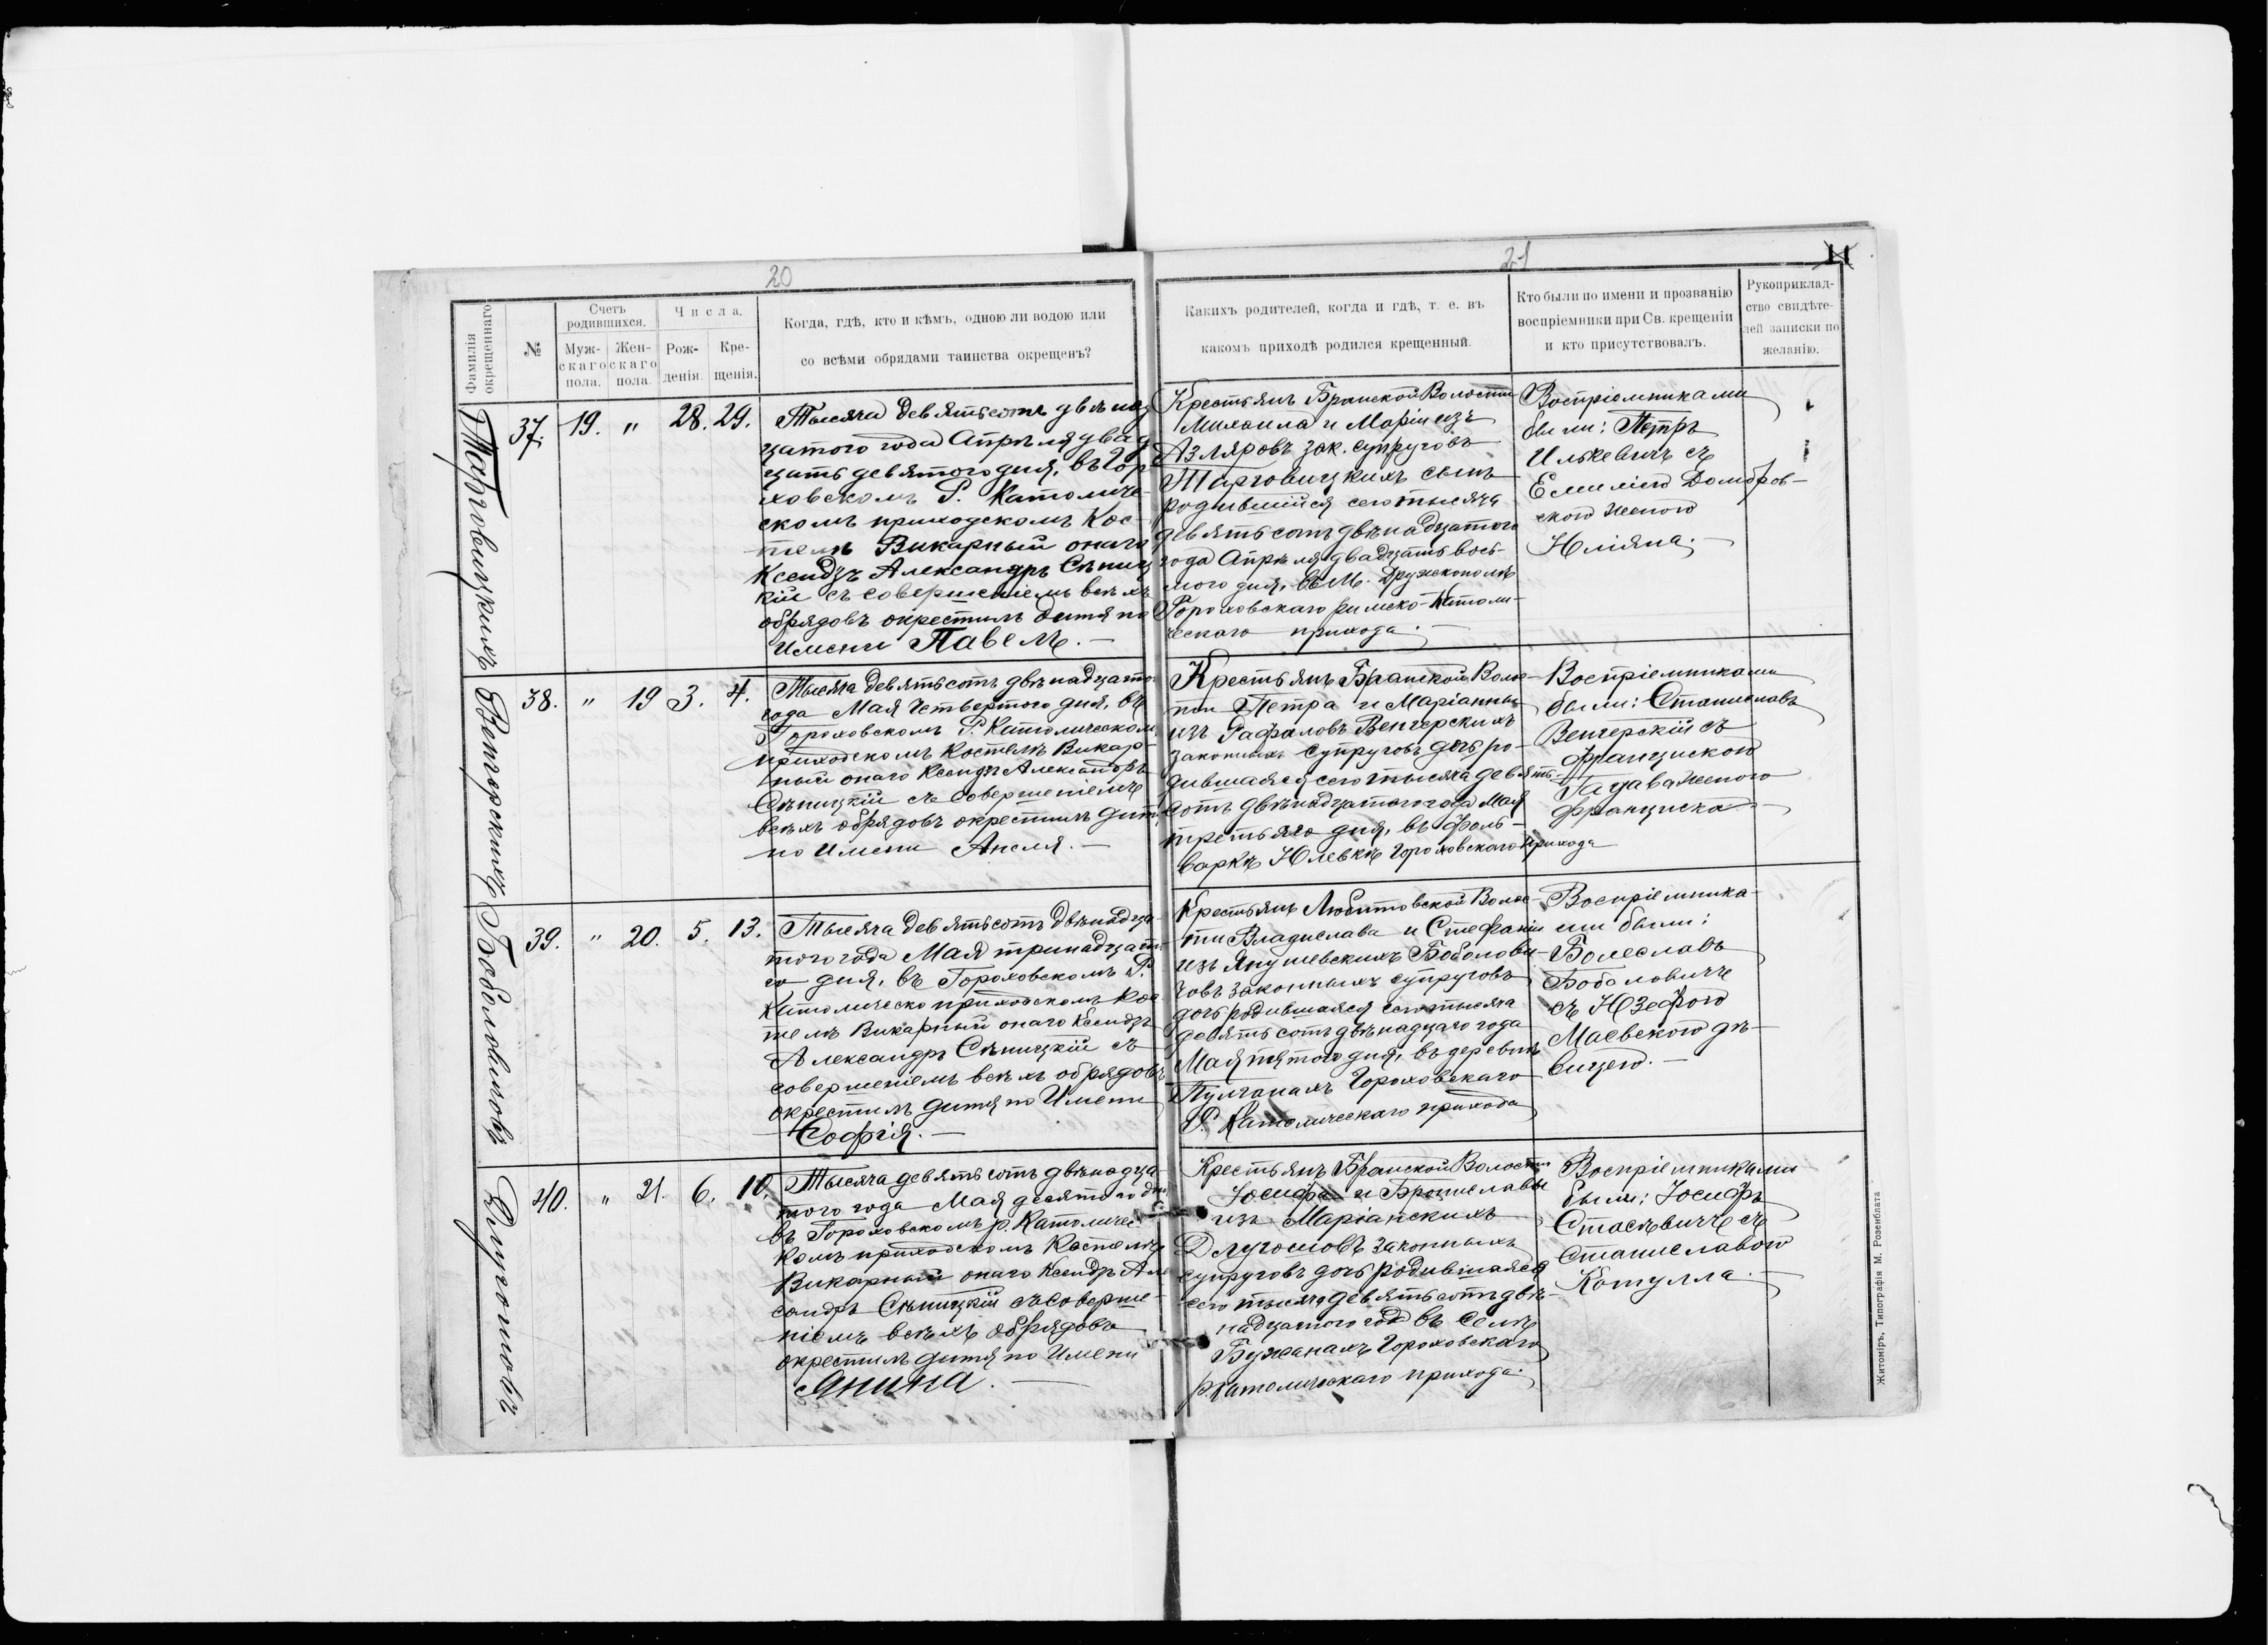 20
Фамилія окрещеннаго
№
Счетъ родившихся.
Мужскаго пола.
Женскаго пола.
Числа.
Рожденія.
Крещенія.
Когда, гдѣ, кто и кѣмъ, одною ли водою или
со всѣми обрядами таинства окрещенъ?
21
11
Какихъ родителей, когда и гдѣ, т. е. въ
какомъ приходѣ родился крещенный.
Кто были по имени и прозванію
воспріемники при Св. крещеніи
и кто присутствовалъ.
Рукоприклад-
ство свидѣте-
лей записки по
желанію.
Тарговицкихъ
37. 19. " 28. 29.
Тысяча девятьсотъ двѣнад
цатого года Апрѣля двад
цать девятого дня, въ Гор
ховскомъ Р. Католиче-
скомъ приходскомъ Кос-
телѣ Викарный онаго
Ксендзъ Александръ Сѣниц
кій съ совершеніемъ всѣхъ
обрядовъ окрестилъ дитя по
Имени Павелъ. —
Крестьянъ Бранской Волости
Михаила и Маріи изъ
Азляровъ зак. супруговъ
Тарговицкихъ сынъ
родившійся сего тысяча
девятьсотъ двѣнадцатого
года Апрѣля двадцать вось-
мого дня, въ М. Дружкополѣ
Гороховскаго Римско-Католи-
ческаго прихода. —
Воспріемниками
были: Петръ
Илькевичъ съ
Емиліею Домбров-
скою женою
Юліяна. —
Венгерскихъ
38. " 19 3. 4.
Тысяча девятьсотъ двѣнадцато
года Мая четвертого дня, въ
Гороховскомъ Р. Католическом
приходскомъ Костелѣ Викар-
ный онаго Ксендзъ Александръ
Сѣницкій съ совершеніемъ
всѣхъ обрядовъ окрестилъ дит.
по Имени Анеля. —
Крестьянъ Бранской Волос-
ти Петра и Маріанны
изъ Рафаловъ Венгерскихъ
законныхъ супруговъ дочь ро-
дившаяся сего тысяча девять-
сотъ двѣнадцатого года Мая
третьяго дня, въ фоль-
варкѣ Юлевкѣ Гороховскаго прихода
Воспріемниками
были: Станиславъ
Венгерскій съ
Францишкою
женою
Франциска —
Боболовичовъ
39. " 20. 5. 13.
Тысяча девятьсотъ двѣнадца-
того года Мая тринадцато-
го дня, въ Гороховскомъ Р.
Католическо приходскомъ Кос
телѣ Викарный онаго Ксендзъ
Александръ Сѣницкій съ
совершеніемъ всѣхъ обрядовъ
окрестилъ дитя по Имени
Софія. —
Крестьянъ Любитовской Волос-
ти Владислава и Стефаніи
изъ Янушевскихъ Боболови-
човъ законныхъ супруговъ
дочь родившаяся сего тысяча
девятьсотъ двѣнадцаго года
Мая пятого дня, въ деревнѣ
Пулганахъ Гороховскаго
Р. Католическаго прихода
Воспріемника-
ми были:
Болеславъ
Боболовичъ
съ Юзефою
Маевскою дѣ-
вицею. —
Длугошовъ
40. " 21. 6. 10.
Тысяча девятьсотъ двѣнадца-
того года Мая десятого дня,
въ Гороховскомъ р. Католичес
комъ приходскомъ Костелѣ
Викарный онаго Ксендзъ Але
сандръ Сѣницкій съ соверше-
ніемъ всѣхъ обрядовъ
окрестилъ дитя по Имени
Янина. —
Крестьянъ Бранской Волости
Іосифа и Брониславы
изъ Маріанскихъ
Длугошовъ законныхъ
супруговъ дочь родившаяся
сего тысяча девятьсотъ двѣ-
надцатого года въ селѣ
Бужанахъ Гороховскаго
р. католическаго прихода.
Воспріемниками
были: Іосифъ
Стасѣвичъ съ
Станиславою
Котулла. —
Житоміръ, Типографія М. Розенблата